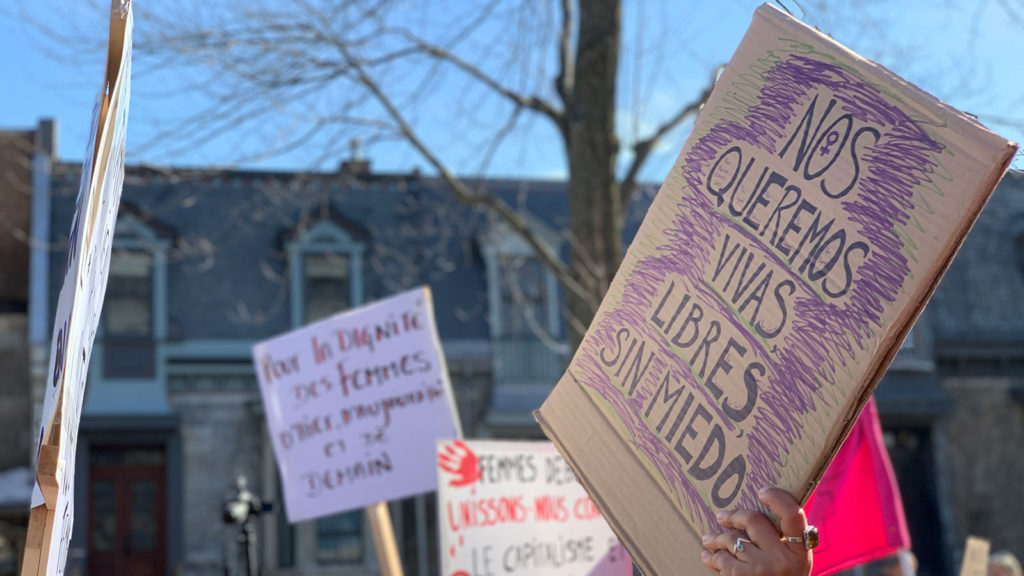 NOS
QUEREMOS
VIVAS,
LIBRES,
SIN MIEDO
Pour la DIGNITÉ
DES FEMMES
D'HIER, D'AUJOURD'HUI
ET DE
DEMAIN
FEMMES
UNISSONS-NOUS
LE CAPITALISME ET